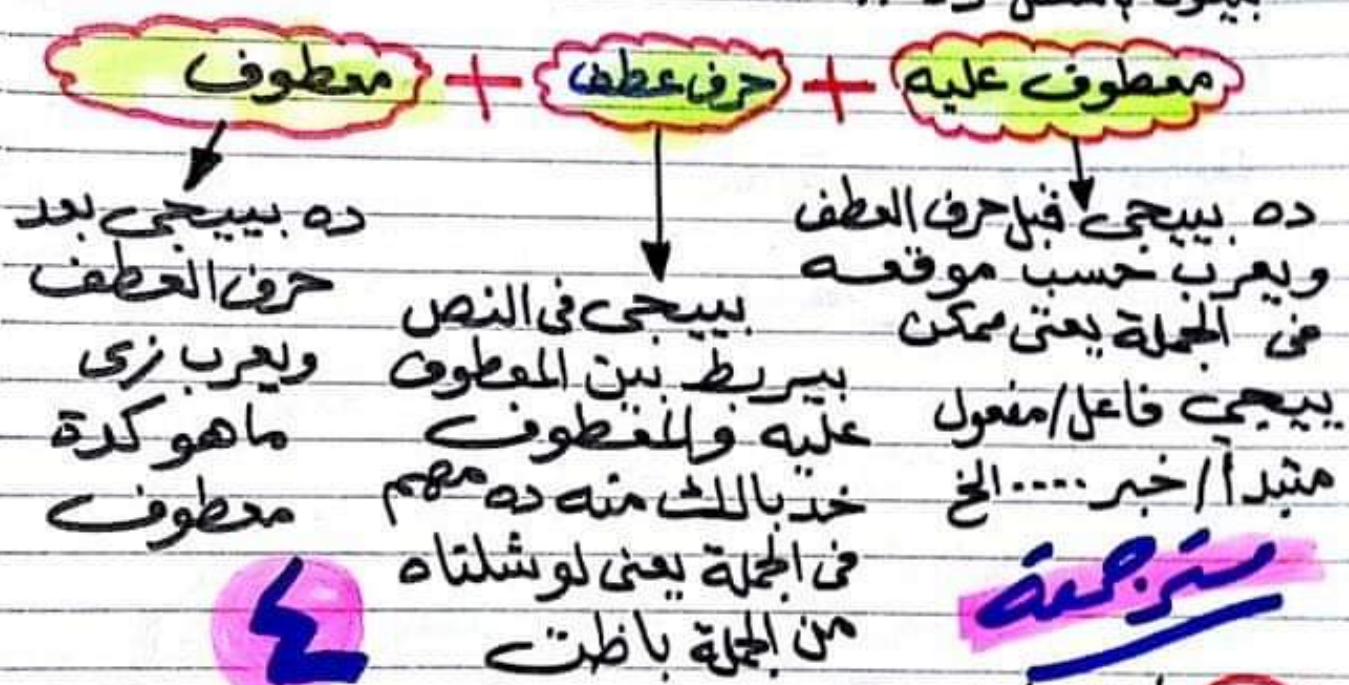 معطوف عليه + حرف عطف + معطوف
ده بييجى قبل حرف العطف
ويعرب حسب موقعه
فى الجملة يعنى ممكن
ييجى فاعل/مفعول
مبتدأ/خبر....الخ
بييجى فى النص
بيربط بين المعطوف
عليه والمعطوف
خد بالك منه ده مهم
فى الجملة يعنى لو شلناه
من الجملة باظت
ده بييجى بعد
حرف العطف
ويعرب زى
ماهو كدة
معطوف
مترجمة
٤